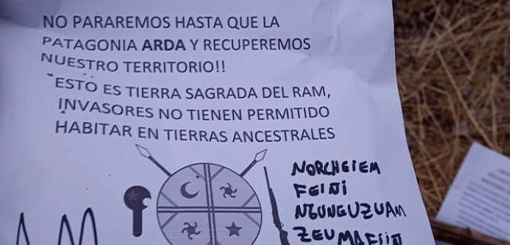 NO PARAREMOS HASTA QUE LA
PATAGONIA ARDA Y RECUPEREMOS
NUESTRO TERRITORIO!!
"ESTO ES TIERRA SAGRADA DEL RAM,
INVASORES NO TIENEN PERMITIDO
HABITAR EN TIERRAS ANCESTRALES
NORCHEIEM
FEIPI
NGUNGUZUAM